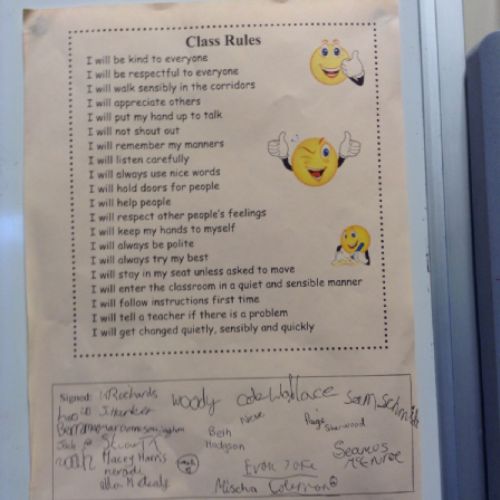 Class Rules
I will be kind to everyone
I will be respectful to everyone
I will walk sensibly in the corridors
I will appreciate others
I will put my hand up to talk
I will not shout out
I will remember my manners
I will listen carefully
I will always use nice words
I will hold doors for people
I will help people
I will respect other people's feelings
I will keep my hands to myself
I will always be polite
I will always try my best
I will stay in my seat unless asked to move
I will enter the classroom in a quiet and sensible manner
I will follow instructions first time
I will tell a teacher if there is a problem
I will get changed quietly, sensibly and quickly
Signed:
woody
Wallace
Sam Schmidt
J. Harker
Beth
Hodgson
Paige Sherwood
Macey Harris
Seamus
McEnroe
Evan
Mischa Coleman